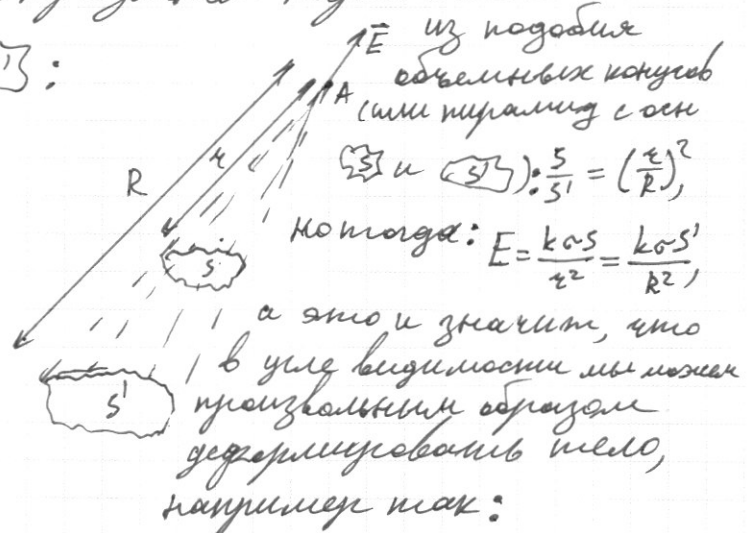 E⃗ из подобия
объемных конусов
A (или пирамид с осн
R r S и S'): S/S' = (r/R)²,
но тогда: E = kσS/r² = kσS'/R²,
S
а это и значит, что
в угле видимости мы можем
S' произвольным образом
деформировать тело,
например так: